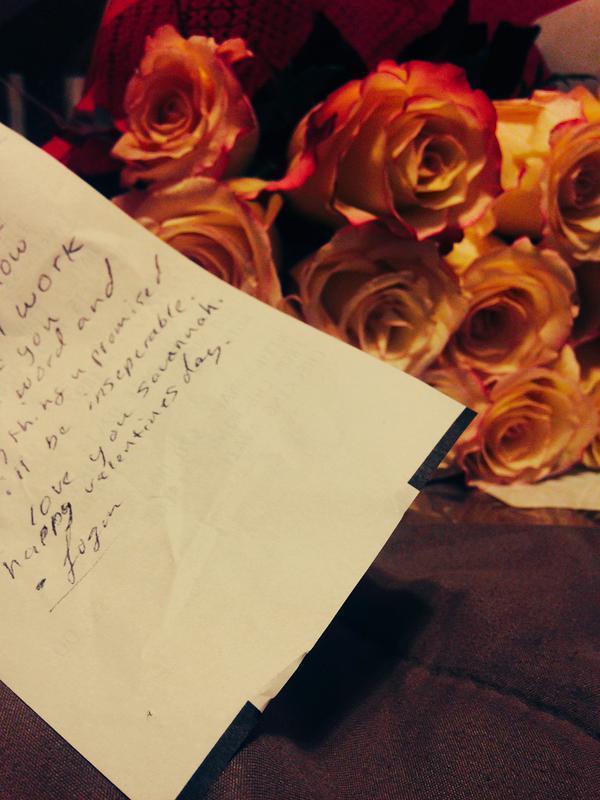 ow
work
you
word and
thing u promised
ll be inseperable.
love you savannah.
happy valentines day.
- Logan